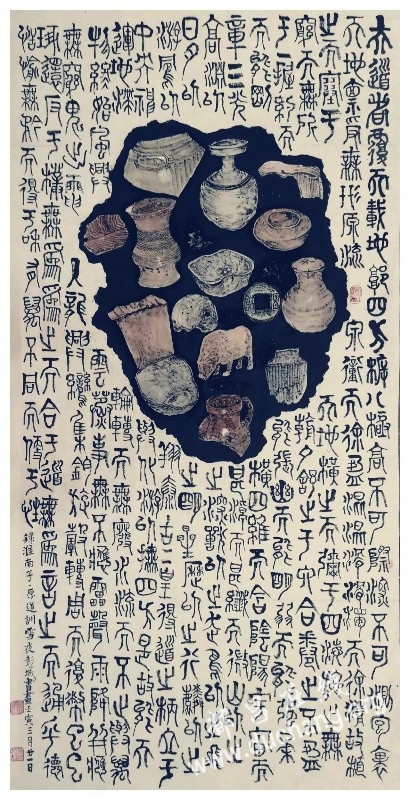 夫道者覆天載地廓四方柝八極高不可際深不可測包裹
天地稟授無形原流泉浡沖而徐盈混混滑滑濁而徐清故植
之而塞于天地橫之而彌于四海施之無
窮而無所朝夕舒之幎于六合卷之不盈
于一握約而能張幽而能明弱而能強柔
而能剛橫四維而含陰陽紘宇宙而
章三光甚淖而滒甚纖而微山以之
高淵以之深獸以之走鳥以之飛
日月以之明星歷以之行麟以之
游鳳以之翔泰古二皇得道之柄立于
中央神與化游以撫四方是故能天
運地滯輪轉而無廢水流而不止與萬
物終始風與雲蒸事無不應雷聲雨降並應
無窮鬼出電入龍興鸞集鈞旋轂轉周而復匝已彫已
琢還反于樸無為為之而合于道無為言之而通乎德
恬愉無矜而得于和有萬不同而便于性
錄淮南子原道訓雪夜彭城書畫壬寅三月廿一日